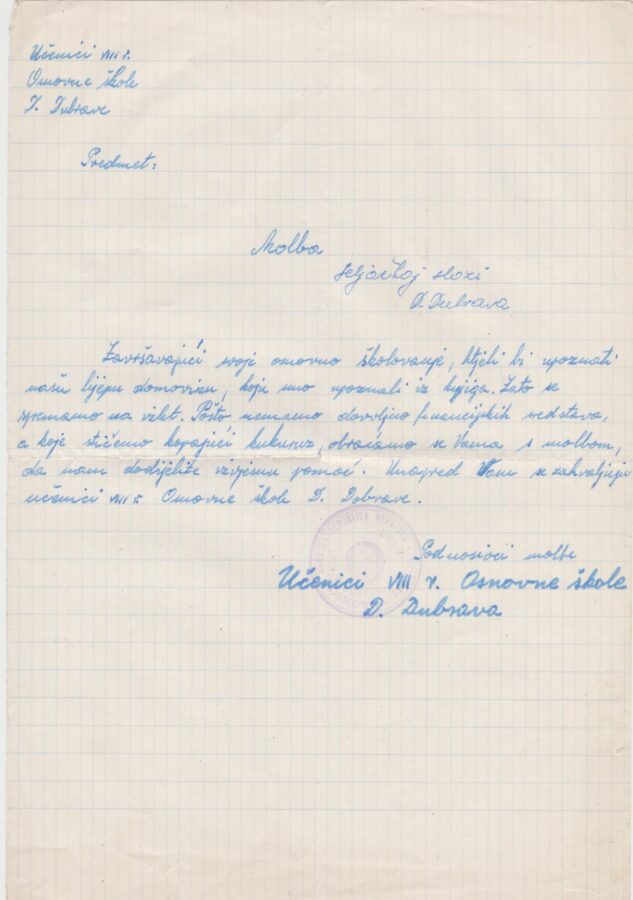 Učenici VIII r.
Osnovne škole
D. Dubrave
Predmet:
Molba
Seljačkoj slozi
D. Dubrava
Završavajući svoje osnovno školovanje, htjeli bi upoznati
našu lijepu domovinu, koju smo upoznali iz knjiga. Zato se
spremamo na izlet. Pošto nemamo dovoljno financijskih sredstava,
a koje stičemo kopajući kukuruz, obraćamo se Vama s molbom,
da nam dodijelite izvjesnu pomoć. Unapred Vam se zahvaljuju
učenici VIII r. Osnovne škole D. Dobrave.
REPUBLIKA HRVATSKA
Podnosioci molbe
Učenici VIII r. Osnovne škole
D. Dubrava